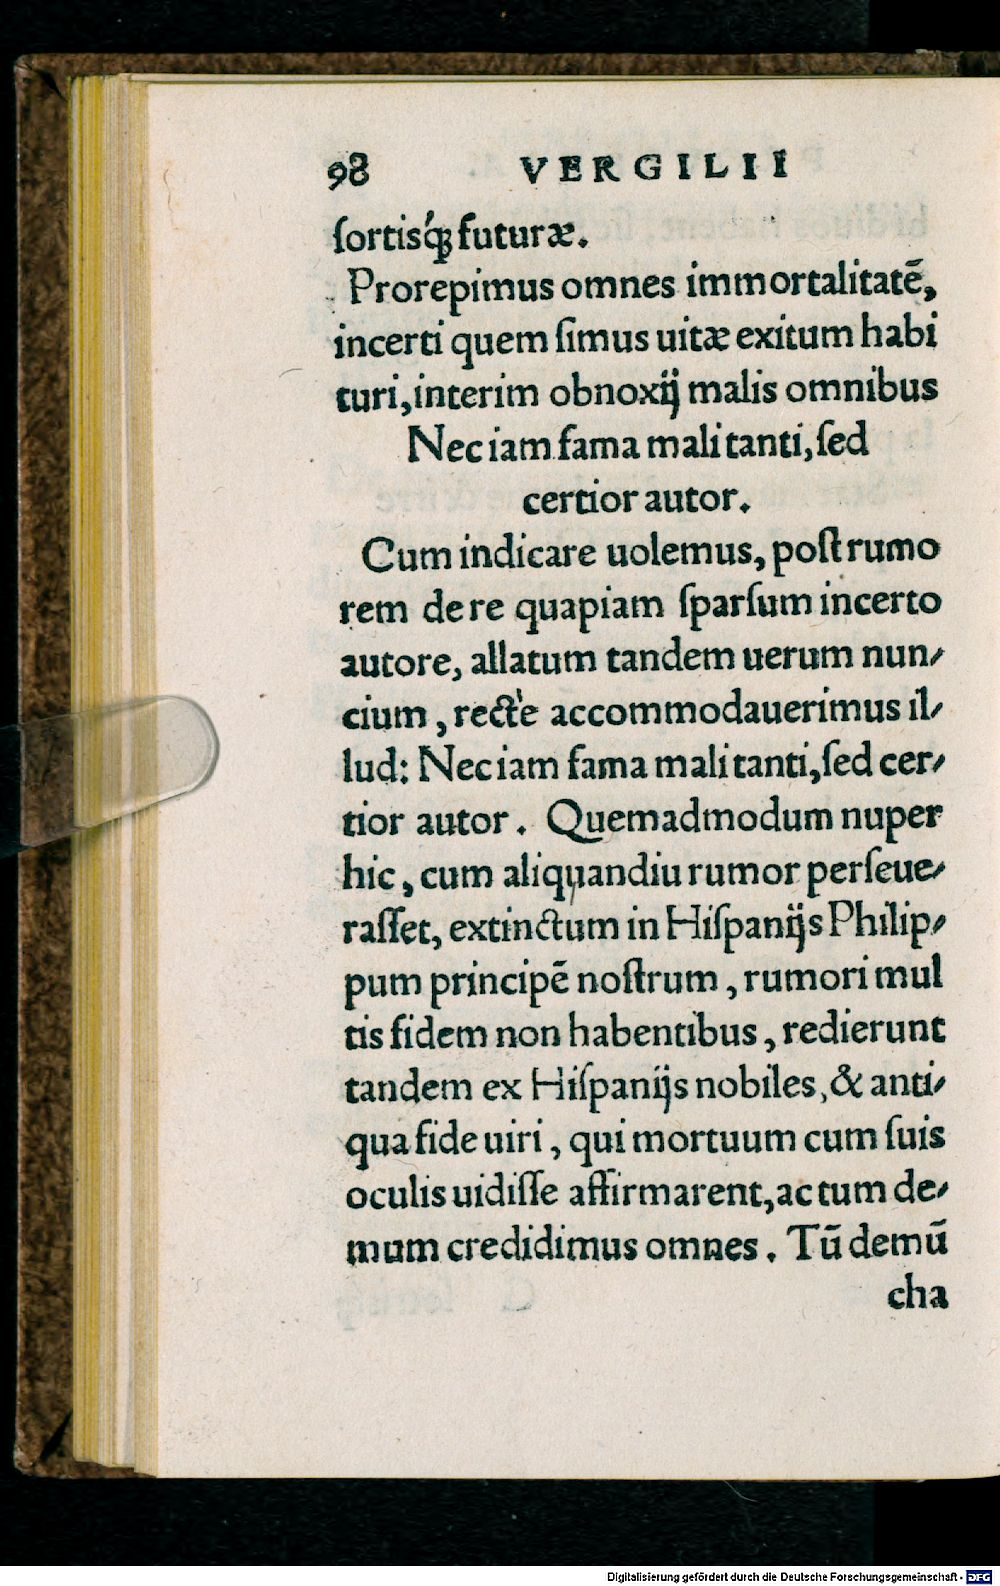 98 VERGILII
ſortisq́ꝫ futuræ.
Prorepimus omnes immortalitatē,
incerti quem ſimus uitæ exitum habi
turi, interim obnoxij malis omnibus
Nec iam fama mali tanti, ſed
certior autor.
Cum indicare uolemus, poſt rumo
rem de re quapiam ſparſum incerto
autore, allatum tandem uerum nun⸗
cium, rectè accommodauerimus il⸗
lud: Nec iam fama mali tanti, ſed cer⸗
tior autor. Quemadmodum nuper
hic, cum aliquandiu rumor perſeue⸗
raſſet, extinctum in Hiſpanijs Philip⸗
pum principē noſtrum, rumori mul
tis fidem non habentibus, redierunt
tandem ex Hiſpanijs nobiles, & anti⸗
qua fide uiri, qui mortuum cum ſuis
oculis uidiſſe affirmarent, ac tum de⸗
mum credidimus omnes. Tū demū
cha
Digitalisierung gefördert durch die Deutsche Forschungsgemeinschaft - DFG